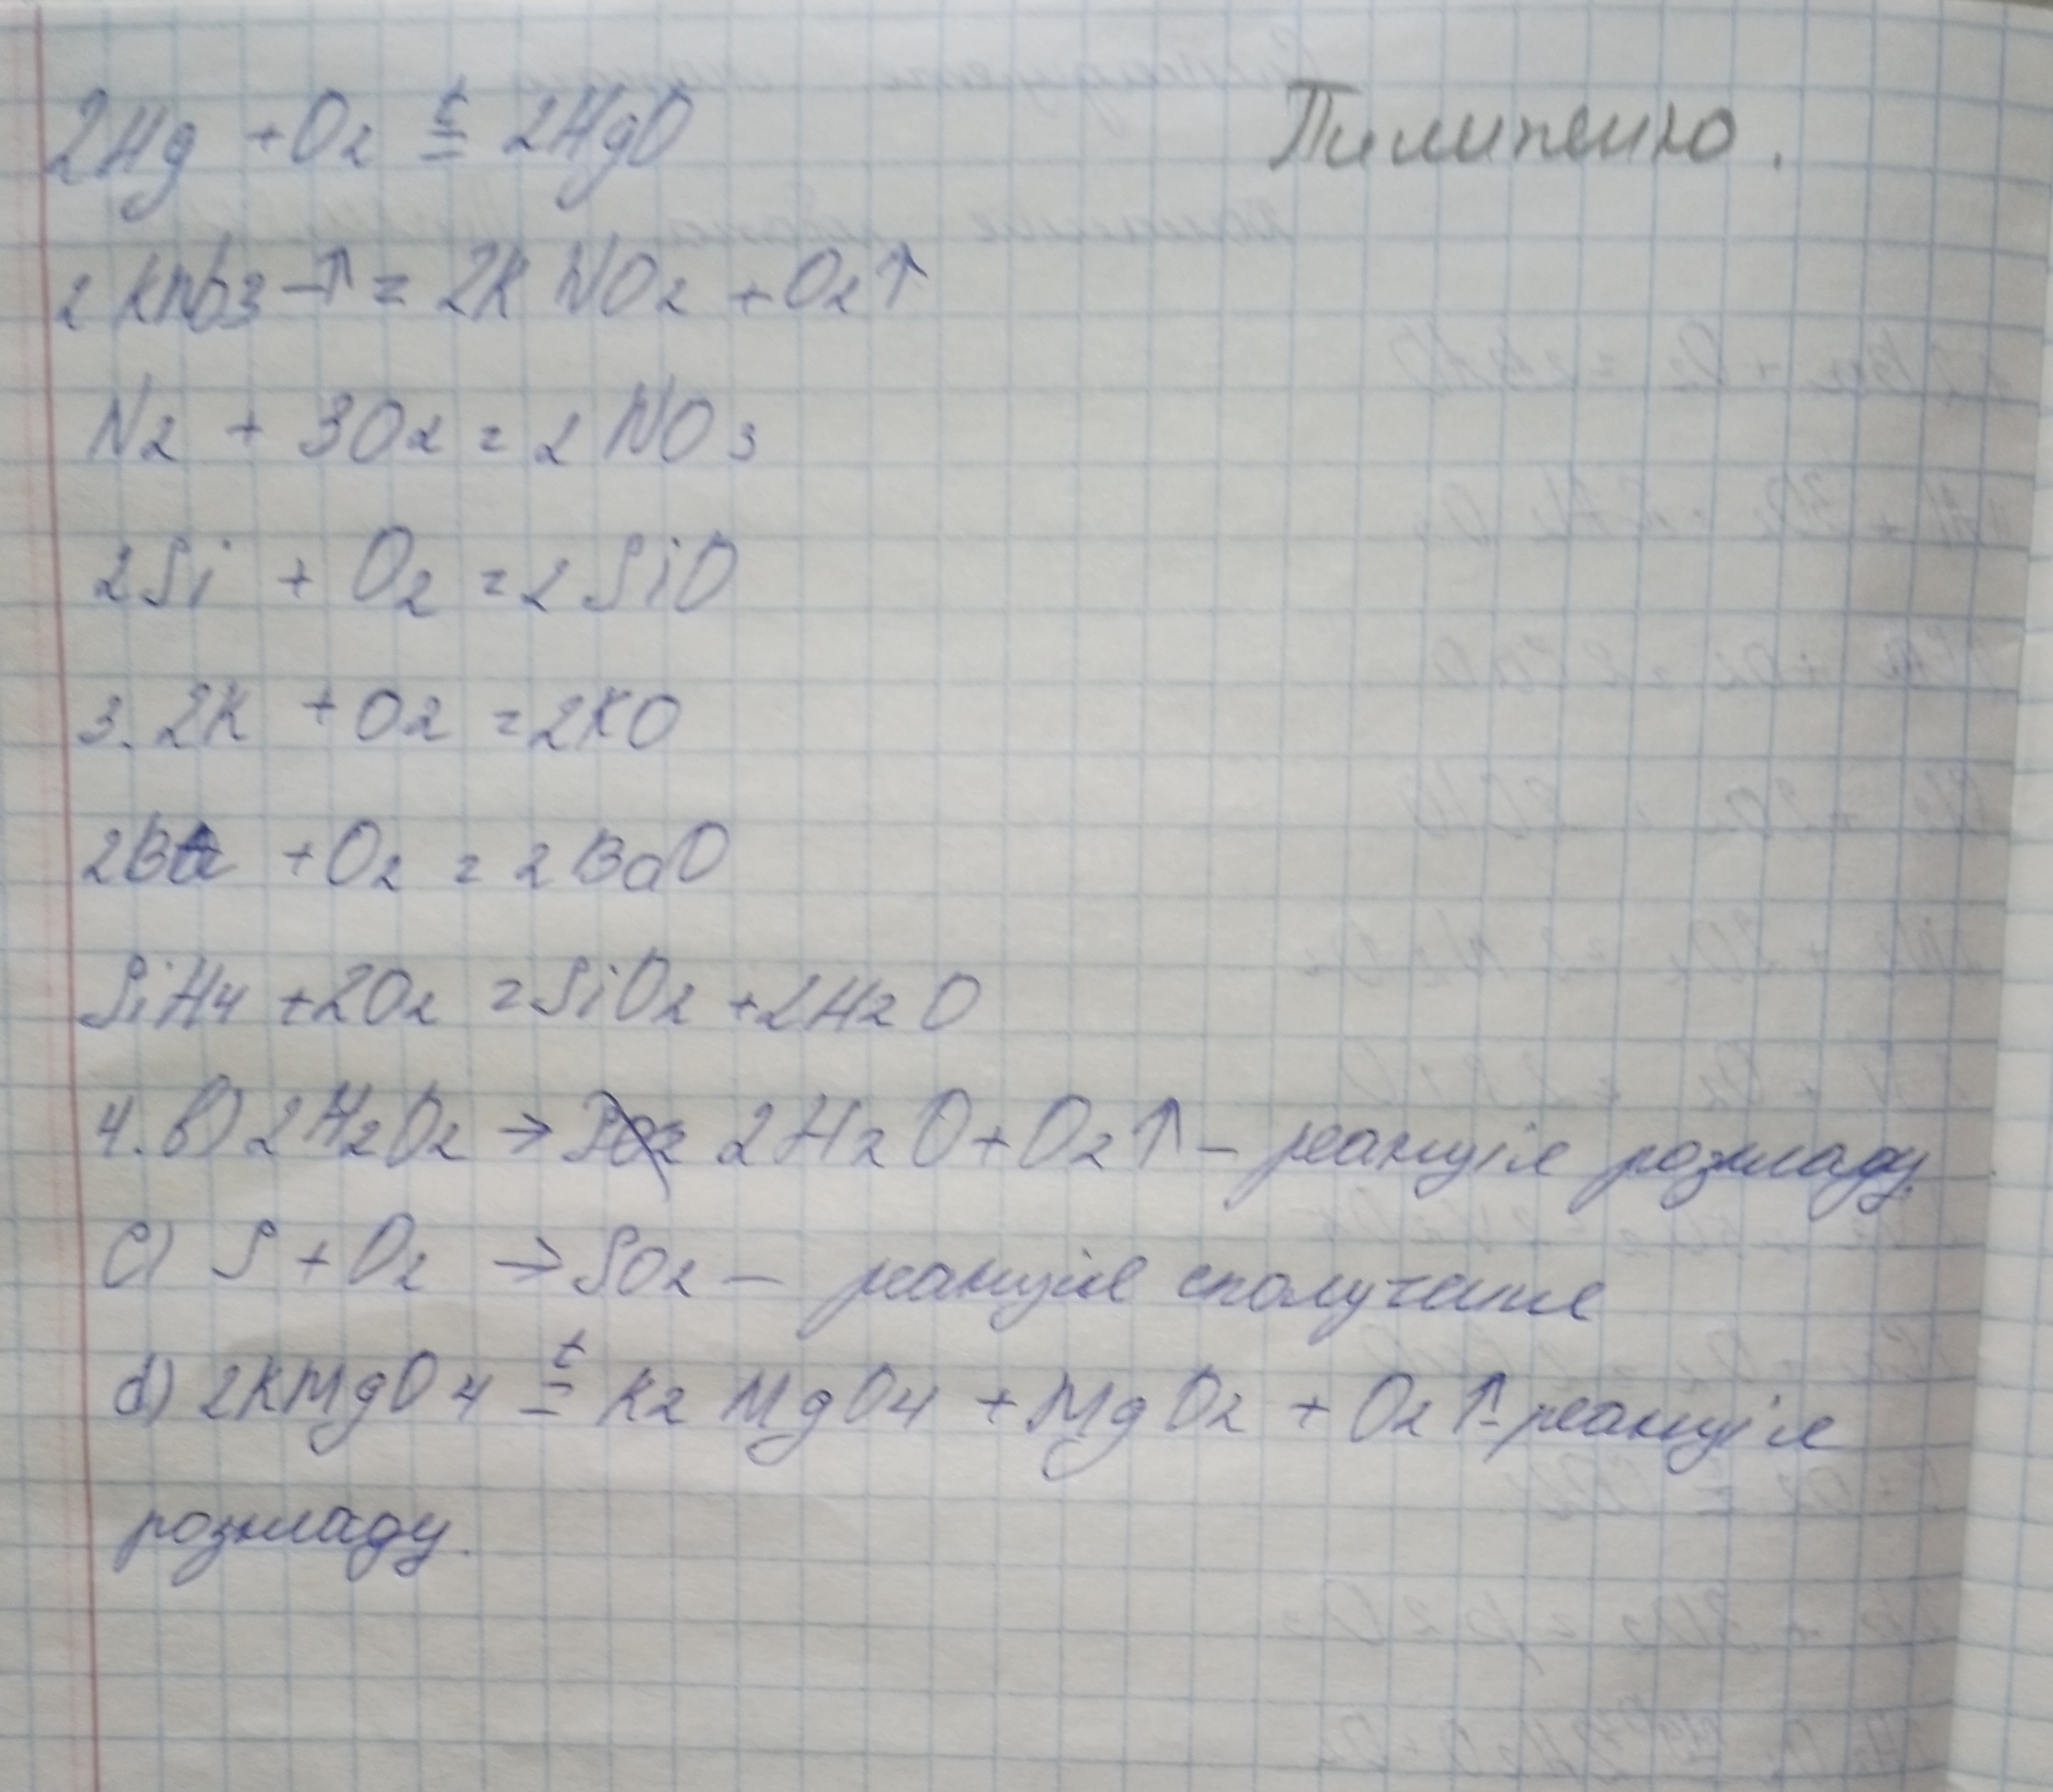 2Hg + O2 t= 2HgO
Пилипенко.
2 KnO3 -↑ = 2K NO2 + O2↑
N2 + 3O2 = 2 NO3
2Si + O2 = 2 SiO
3. 2K + O2 = 2KO
2Ba + O2 = 2 BaO
SiH4 + 2O2 = SiO2 + 2H2O
4. b) 2H2O2 → 2H2O + O2↑ – реакція розкладу.
c) S + O2 → SO2 – реакція сполучення
d) 2KMgO4 t= K2 MgO4 + MgO2 + O2↑ - реакція
розкладу.